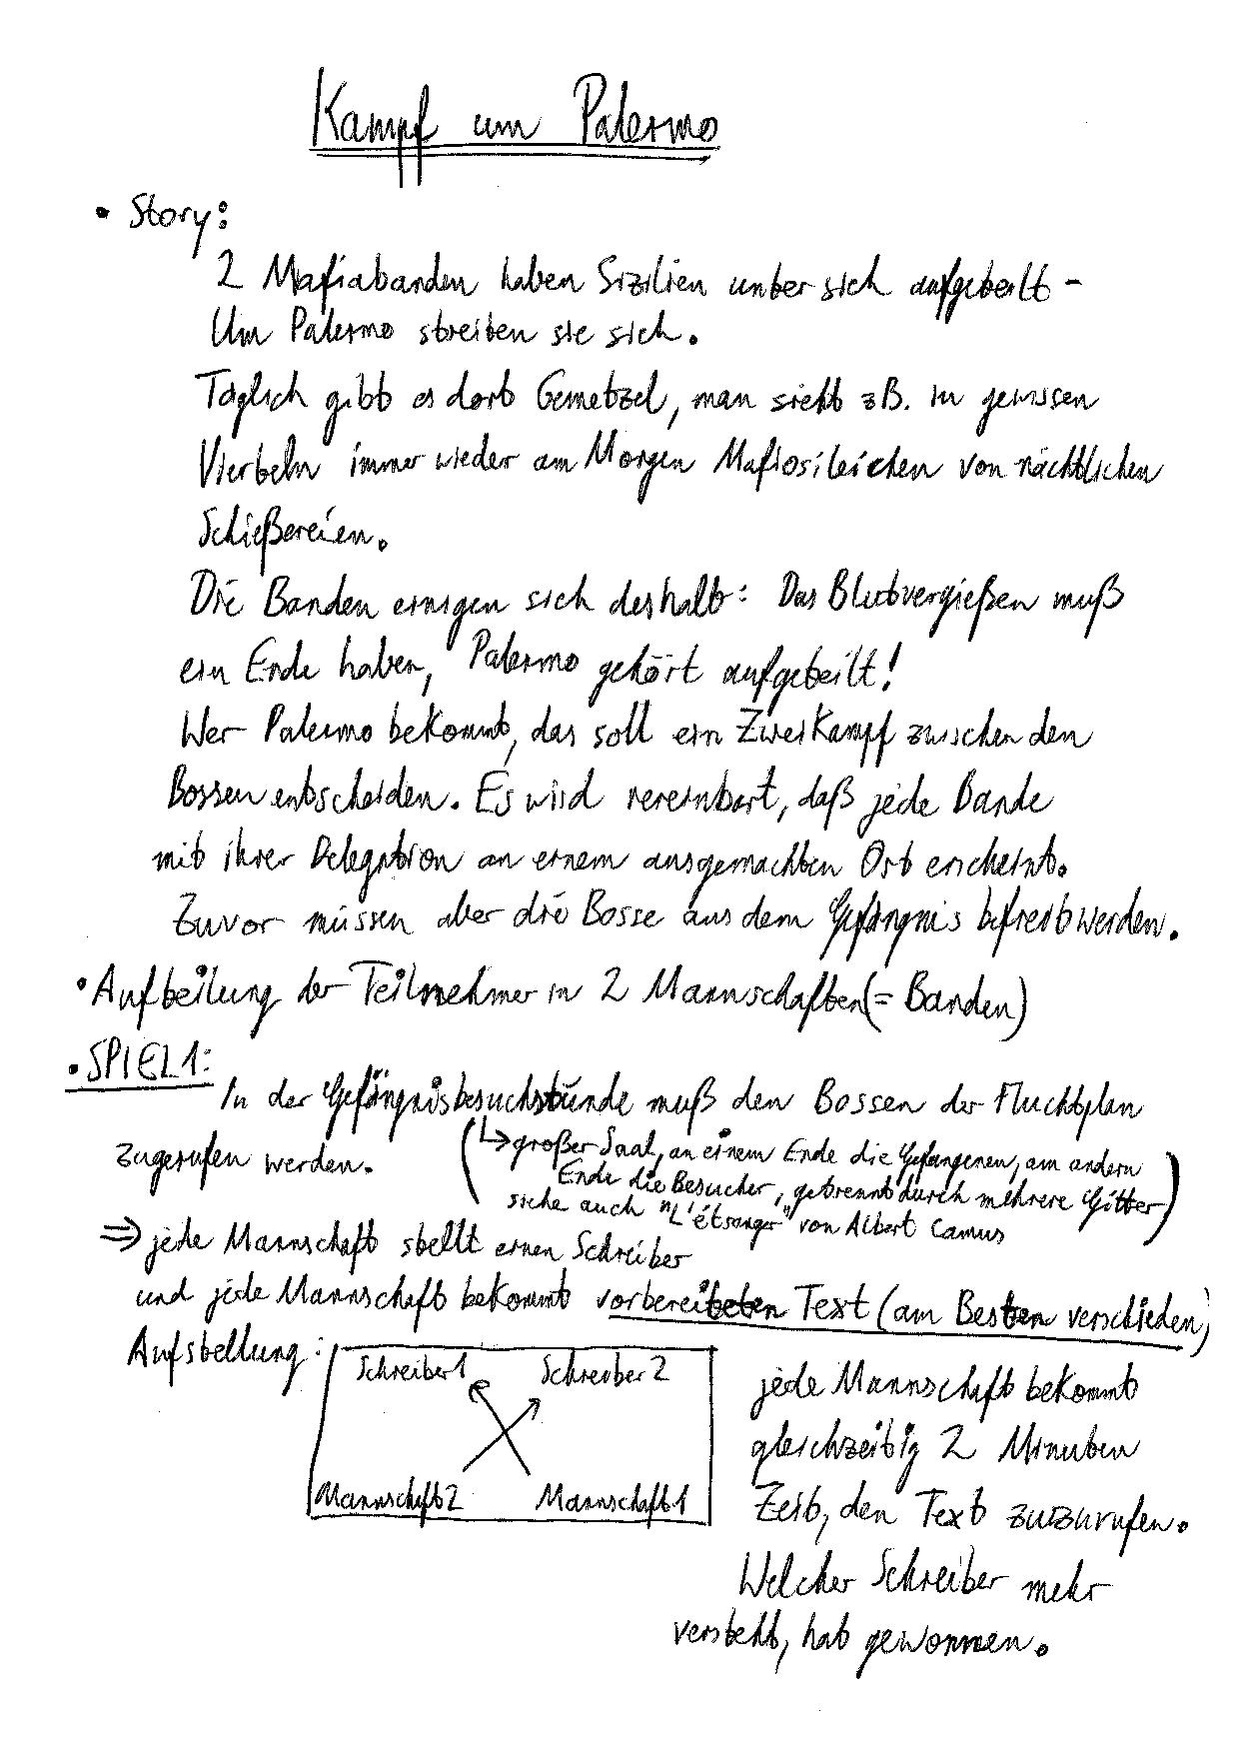 Kampf um Palermo
• Story:
2 Mafiabanden haben Sizilien unter sich aufgeteilt -
Um Palermo streiten sie sich.
Täglich gibt es dort Gemetzel, man sieht zB. in gewissen
Vierteln immer wieder am Morgen Mafiosileichen von nächtlichen
Schießereien.
Die Banden einigen sich deshalb: Das Blutvergießen muß
ein Ende haben, Palermo gehört aufgeteilt!
Wer Palermo bekommt, das soll ein Zweikampf zwischen den
Bossen entscheiden. Es wird vereinbart, daß jede Bande
mit ihrer Delegation an einem ausgemachten Ort erscheint.
Zuvor müssen aber die Bosse aus dem Gefängnis befreit werden.
• Aufteilung der Teilnehmer in 2 Mannschaften (= Banden)
• SPIEL 1:
In der Gefängnisbesuchstunde muß den Bossen der Fluchtplan
zugerufen werden.
(↳ großer Saal, an einem Ende die Gefangenen, am andern
Ende die Besucher, getrennt durch mehrere Gitter)
siehe auch "L'étranger" von Albert Camus
⇒ jede Mannschaft stellt einen Schreiber
und jede Mannschaft bekommt vorbereiteten Text (am Besten verschieden)
Aufstellung:
Schreiber 1 Schreiber 2
Mannschaft 2 Mannschaft 1
jede Mannschaft bekommt
gleichzeitig 2 Minuten
Zeit, den Text zuzurufen.
Welcher Schreiber mehr
versteht, hat gewonnen.